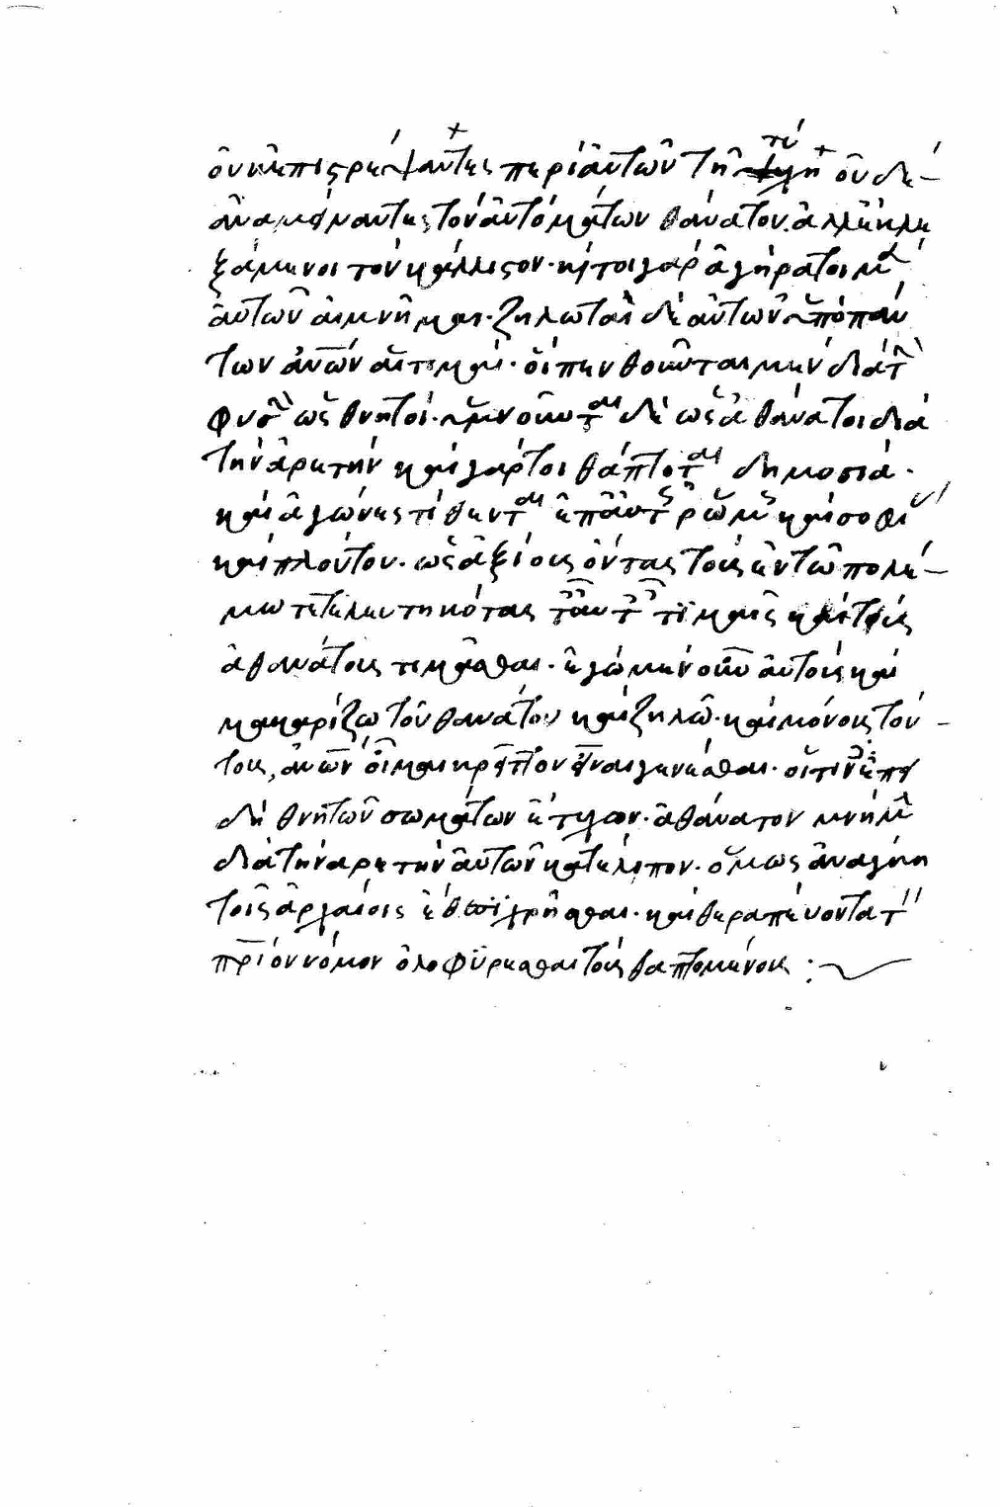 οὐκ ἐπιστρέψαντες περὶ αὐτῶν τῆ τύχη οὐδὲ
ἀναμείναντες τὸν αὐτόματον θάνατον. ἀλλ' ἐκλε
ξάμενοι τὸν κάλλιστον. καίτοι γὰρ ἀγήρατοι μὲν
αὐτῶν αἱ μνῆμαι. ζηλωταὶ δὲ αὐτῶν ὑπὸ πάν
των ἀνων αἱ τιμαί. οἳ πενθοῦνται μὲν διὰ τὴν
φύσιν ὡς θνητοί. ὑμνοῦνται δὲ ὡς ἀθάνατοι διὰ
τὴν ἀρετήν καὶ γάρ τοι θάπτονται δημοσία.
καὶ ἀγῶνες τίθενται ἐπ' αὐτοῖς ῥώμης καὶ σοφίας
καὶ πλούτου. ὡς ἀξίους ὄντας τοὺς ἐν τῶ πολέ
μω τετελευτηκότας ταῖς αὐταῖς τιμαῖς καὶ τοὺς
ἀθανάτους τιμᾶσθαι. ἐγὼ μὲν οὖν αὐτοὺς καὶ
μακαρίζω τοῦ θανάτου καὶ ζηλῶ. καὶ μόνοις τού
τοις, ἀνων οἶμαι κρεῖττον εἶναι γενέσθαι. οἵτινες ἐπει
δὴ θνητῶν σωμάτων ἔτυχον. ἀθάνατον μνήμην
διὰ τὴν ἀρετὴν αὐτῶν κατέλιπον. ὅμως ἀνάγκη
τοῖς ἀρχαίοις ἔθεσι χρῆσθαι. καὶ θεραπεύοντας τὸν
πριον νόμον ὀλοφύρεσθαι τοὺς θαπτομένους :~